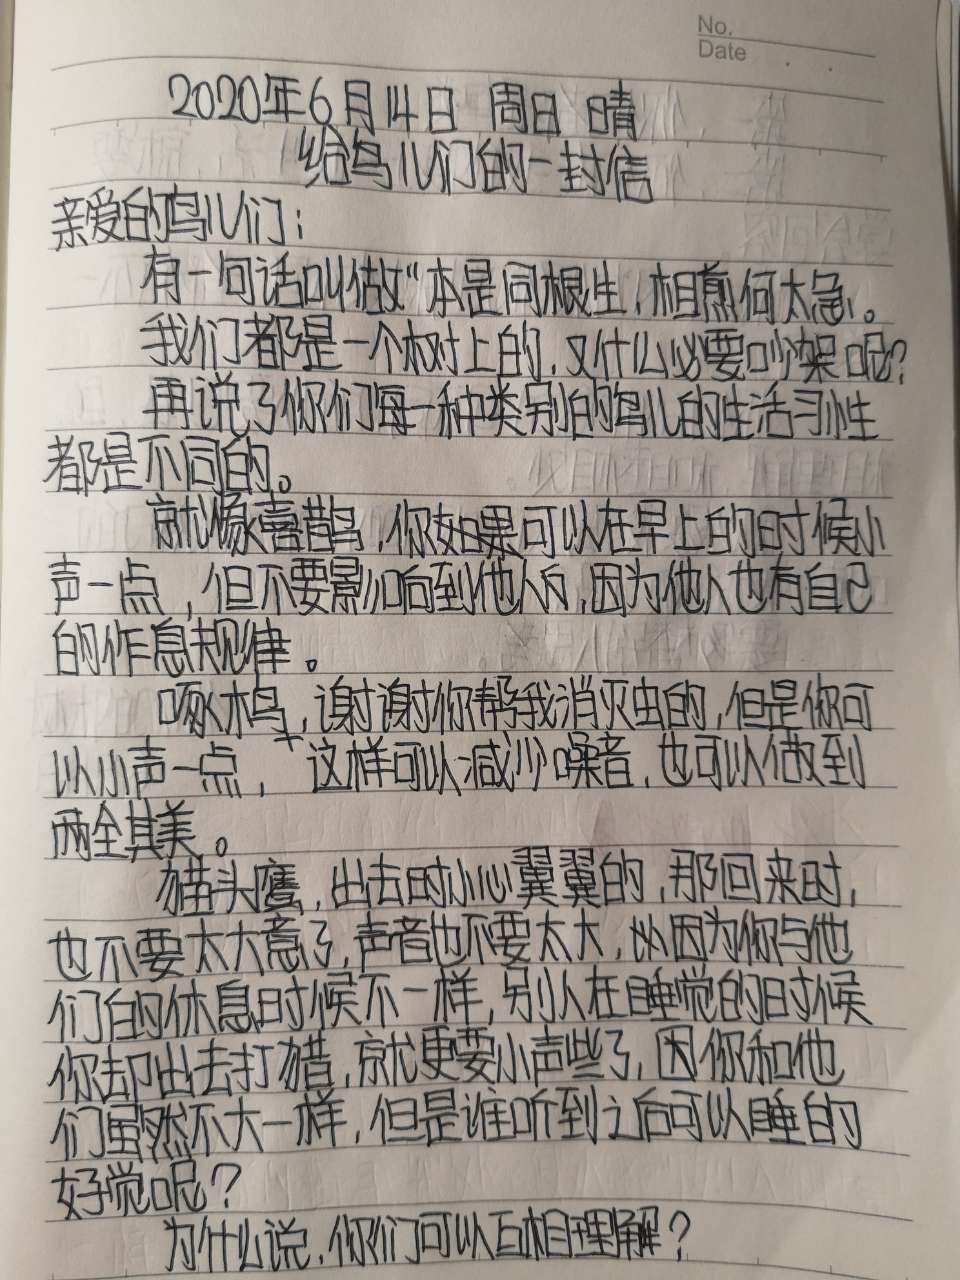 No.
Date
2020年6月14日 周日 晴
给鸟儿们的一封信
亲爱的鸟儿们：
有一句话叫做“本是同根生，相煎何太急。
我们都是一个树上的，又什么必要吵架呢？
再说了你们每一种类别的鸟儿的生活习性
都是不同的。
就像喜鹊鸟，你如果可以在早上的时候小
声一点，但不要影响到他人的，因为他人也有自己
的作息规律。
啄木鸟，谢谢你帮我消灭虫的，但是你可
以小声一点，这样可以减少噪音，也可以做到
两全其美。
猫头鹰，出去时小心翼翼的，那回来时，
也不要太大意了，声音也不要太大，因为你与他
们的休息时候不一样，别人在睡觉的时候
你却出去打猎，就更要小声些了，因你和他
们虽然不大一样，但是谁听到之后可以睡的
好觉呢？
为什么说，你们可以互相理解？